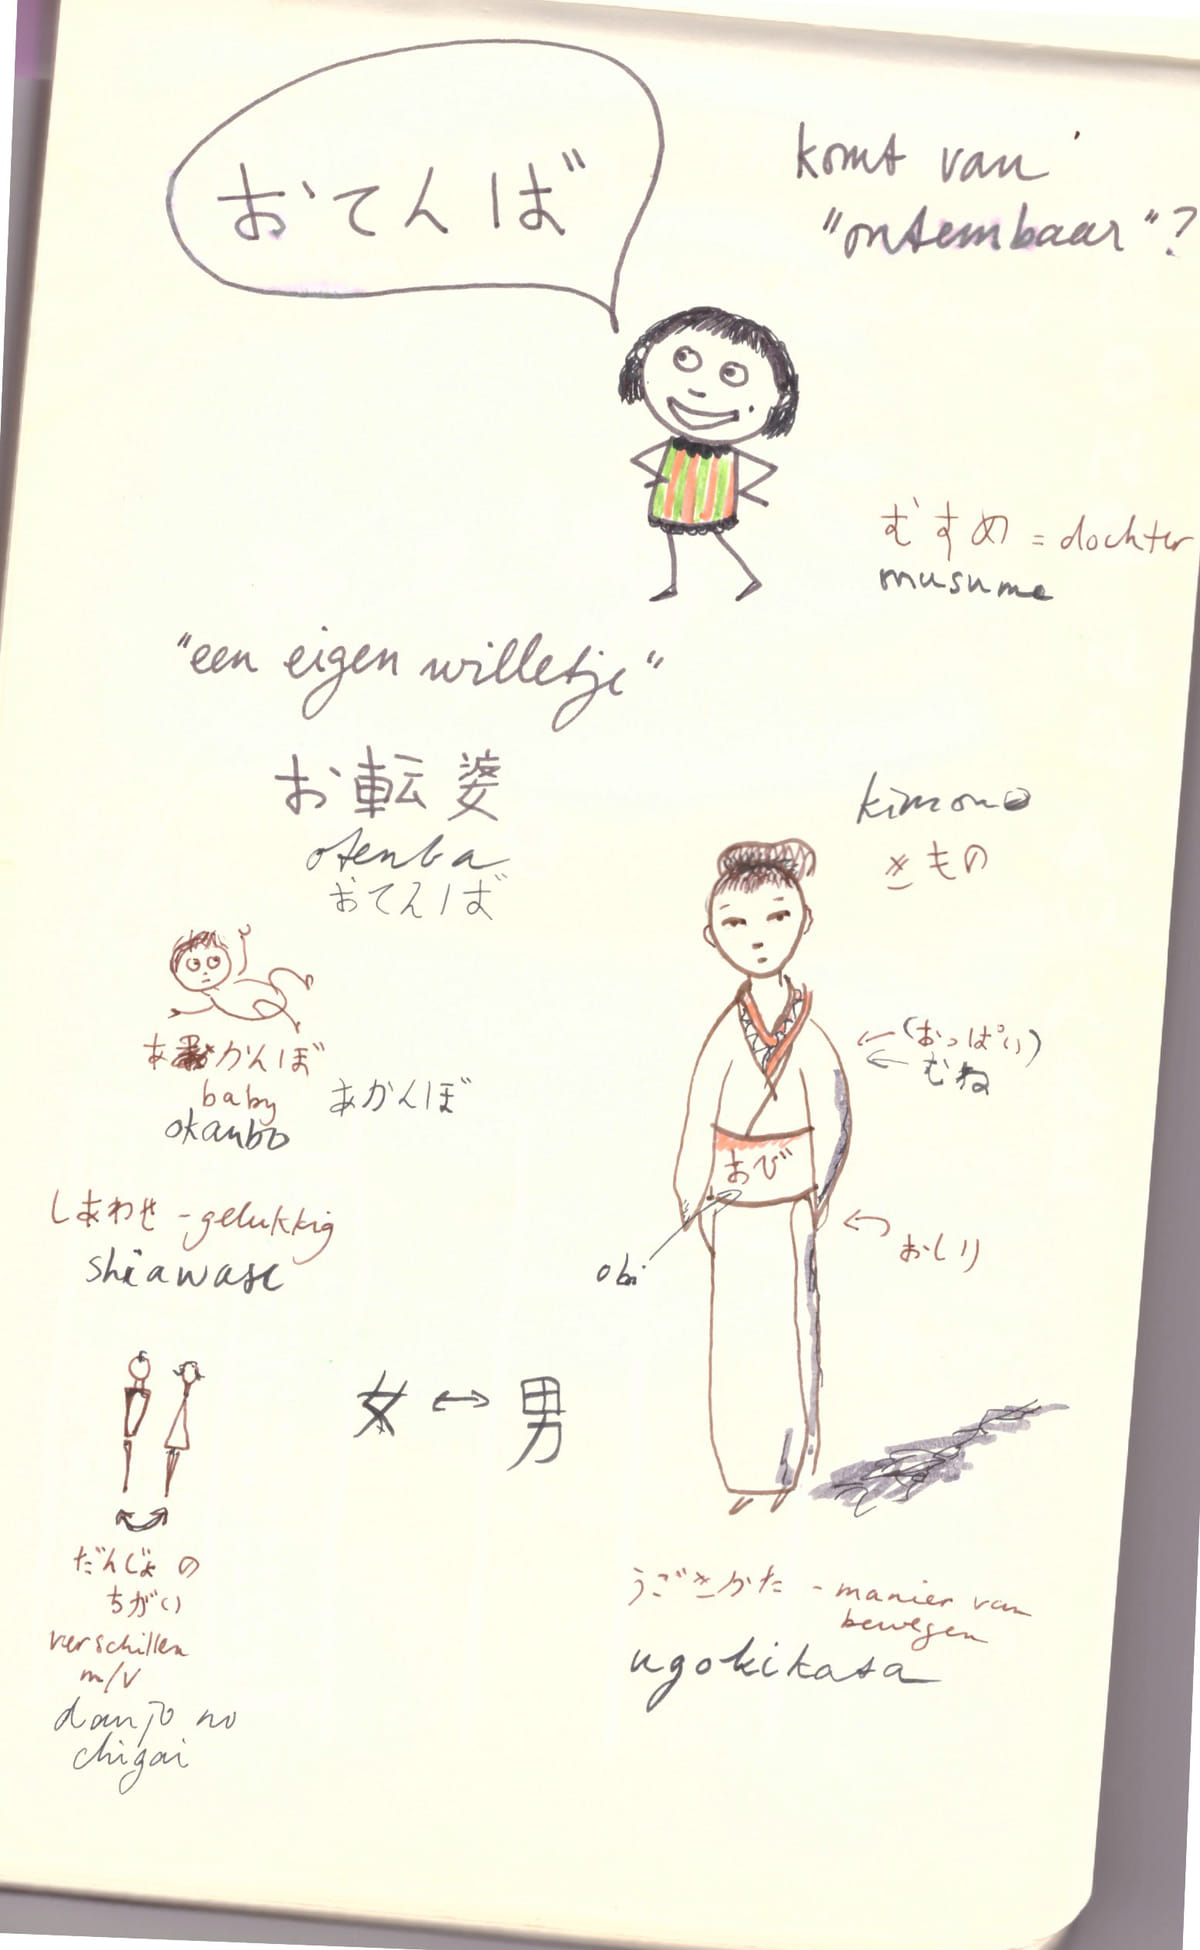 おてんば
komt van
"ontembaar"?
むすめ = dochter
musume
"een eigen willetje"
お転婆
otenba
おてんば
kimono
きもの
あかんぼ
baby
あかんぼ
okanbo
(おっぱい)
むね
おび
obi
おしり
しあわせ - gelukkig
shiawase
女 ↔ 男
だんじょ の
ちがい
verschillen
m/v
danjo no
chigai
うごきかた - manier van
bewegen
ugokikata